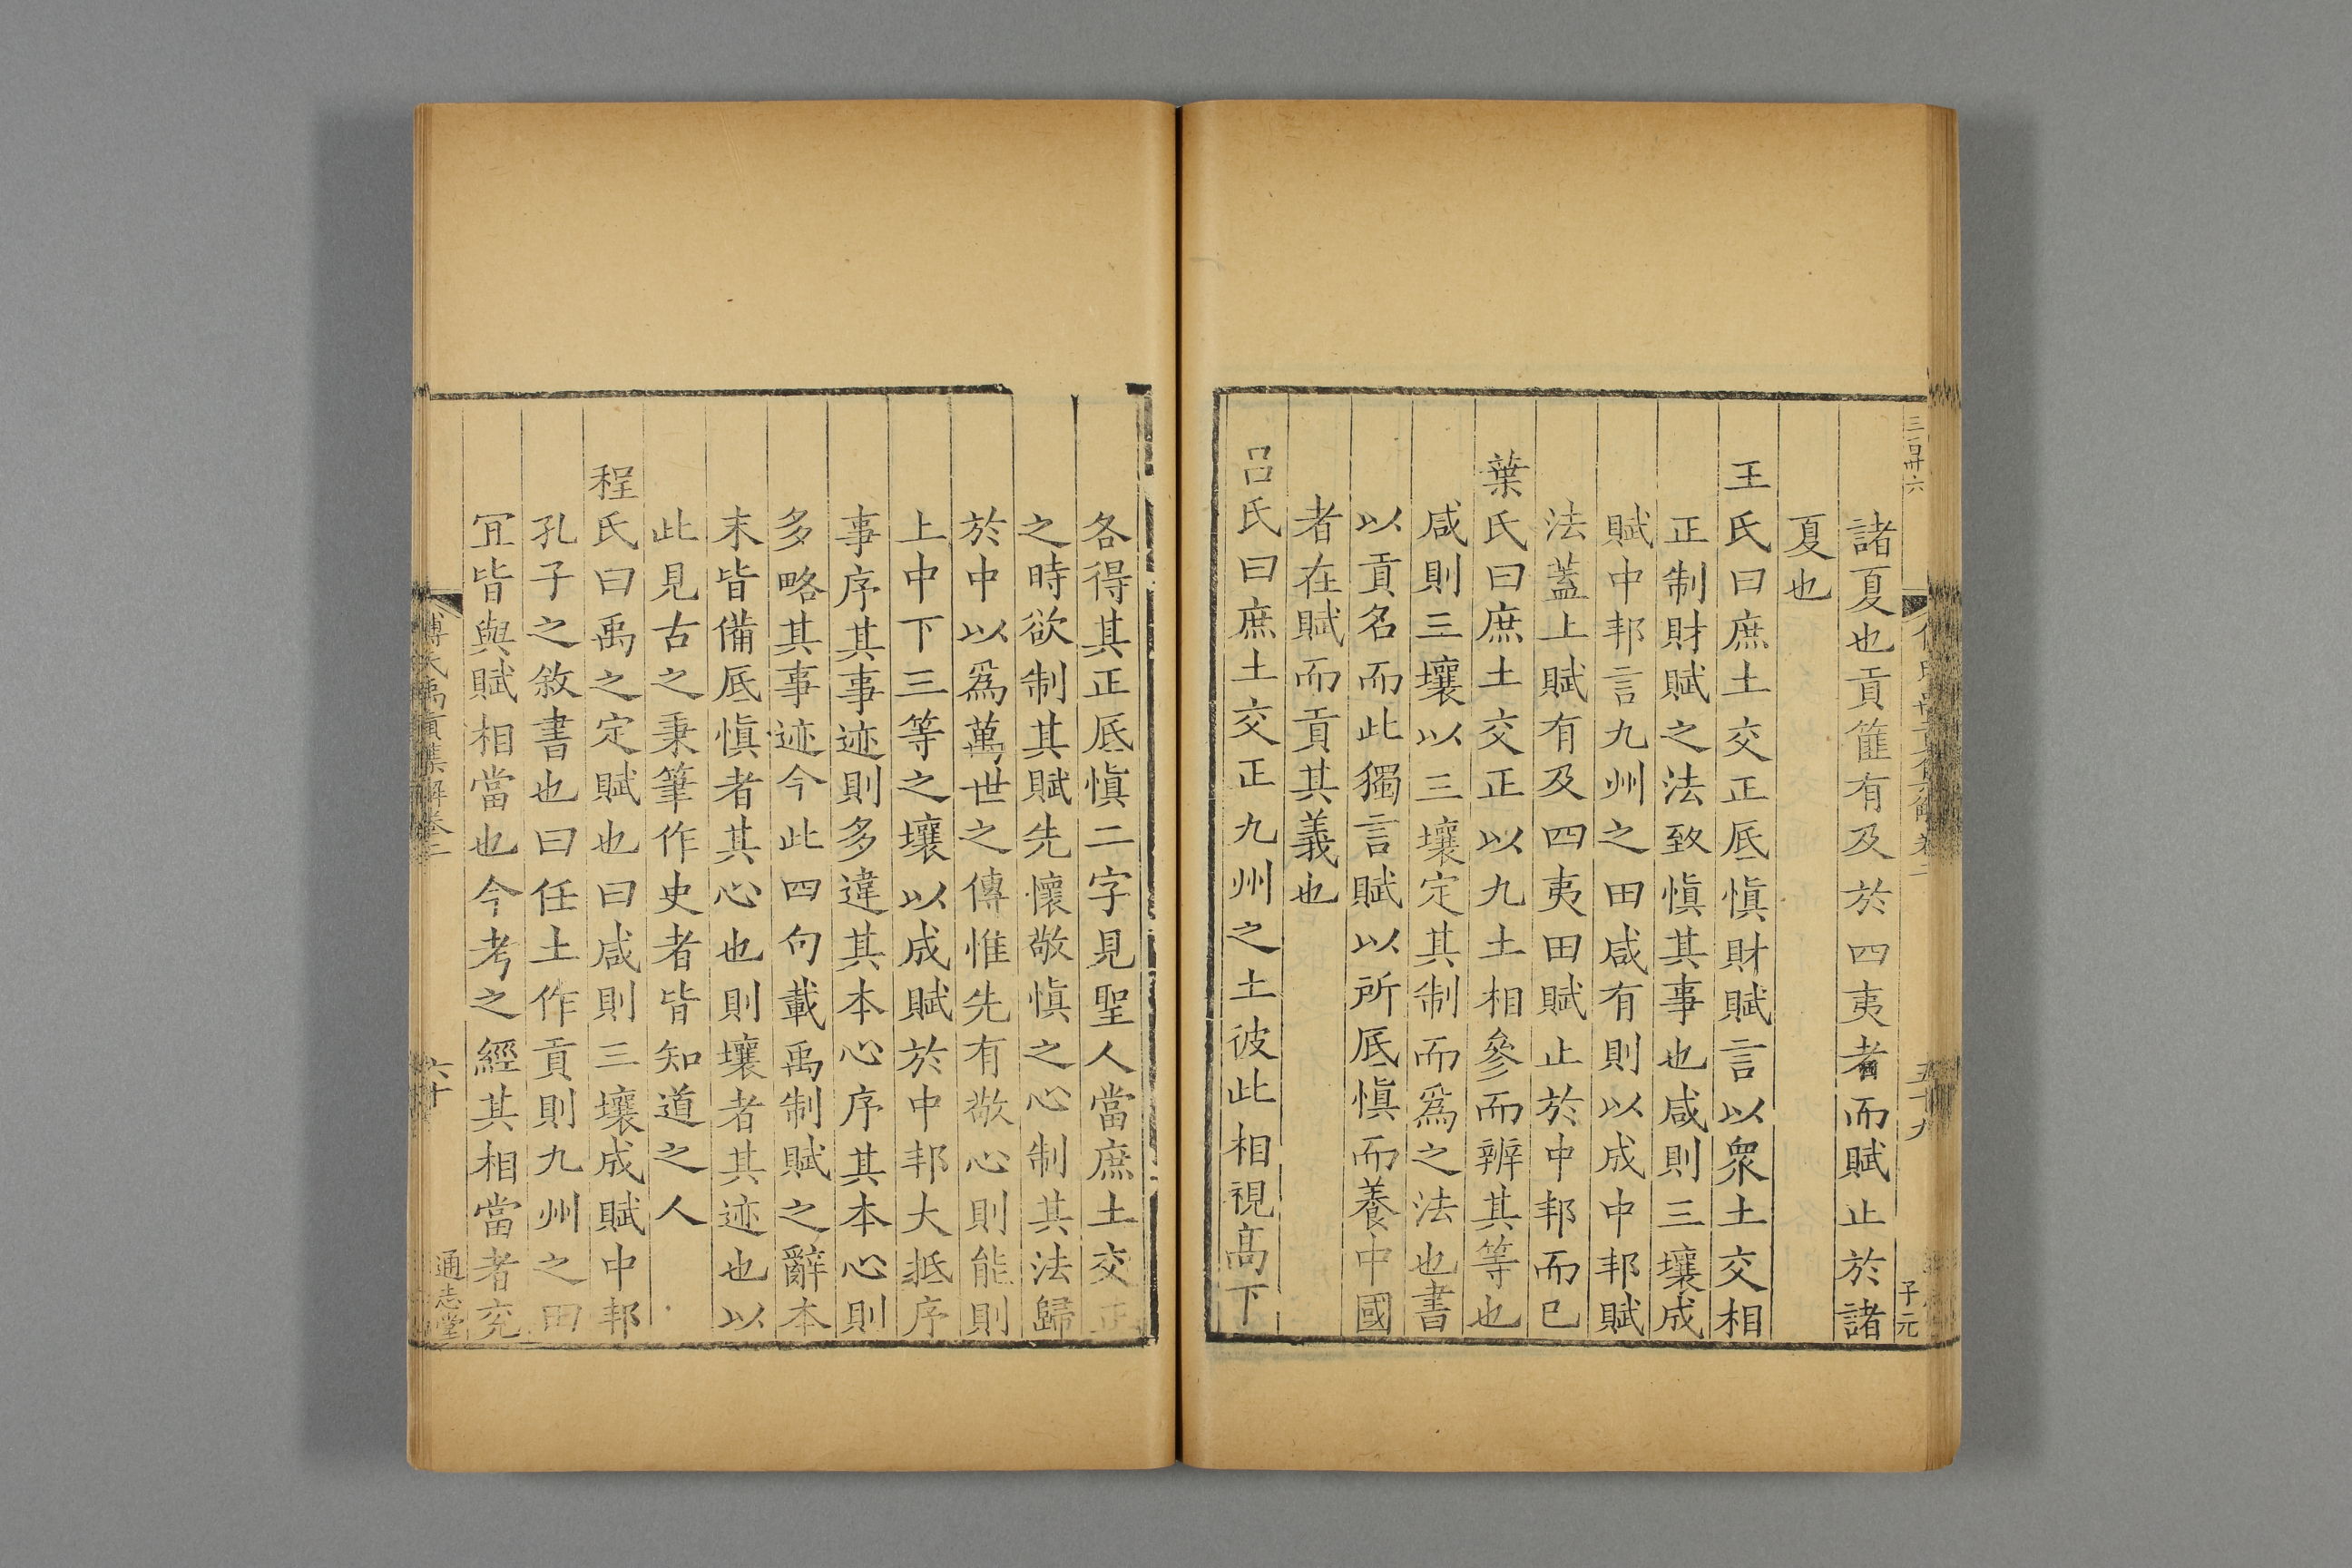 三百卅六
五十九
子元
諸夏也貢篚有及於四夷者而賦止於諸
夏也
王氏曰庶土交正厎愼財賦言以衆土交相
正制財賦之法致愼其事也咸則三壤成
賦中邦言九州之田咸有則以成中邦賦
法蓋上賦有及四夷田賦止於中邦而已
葉氏曰庶土交正以九土相參而辨其等也
咸則三壤以三壤定其制而爲之法也書
以貢名而此獨言賦以所厎愼而養中國
者在賦而貢其義也
呂氏曰庶土交正九州之土彼此相視高下
各得其正厎愼二字見聖人當庶土交正
之時欲制其賦先懷敬愼之心制其法歸
於中以爲萬世之傳惟先有敬心則能則
上中下三等之壤以成賦於中邦大抵序
事序其事迹則多違其本心序其本心則
多略其事迹今此四句載禹制賦之辭本
末皆備厎愼者其心也則壤者其迹也以
此見古之秉筆作史者皆知道之人
程氏曰禹之定賦也曰咸則三壤成賦中邦
孔子之敘書也曰任土作貢則九州之田
宜皆與賦相當也今考之經其相當者兖
傅氏禹貢集解卷二
六十
通志堂